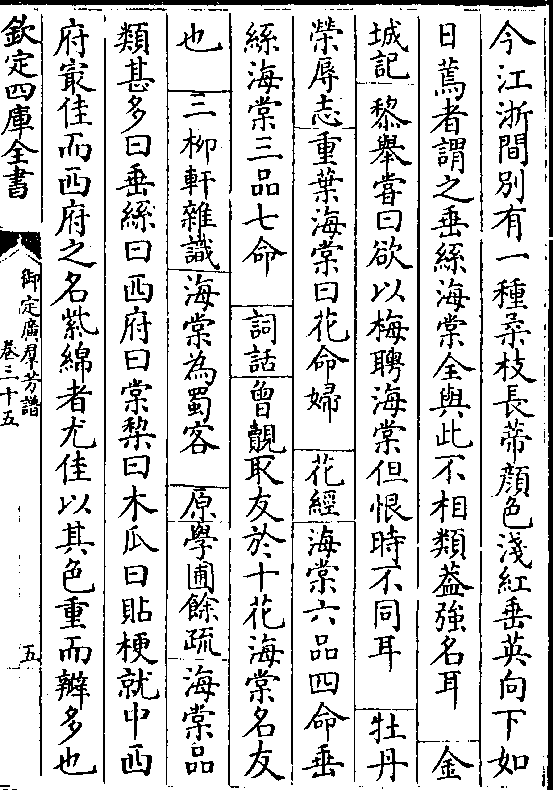 今江浙間別有一種柔枝長蔕顔色淺紅垂英向下如
日蔫者謂之垂絲海棠全與此不相類葢強名耳 金
城記 黎舉嘗曰欲以梅聘海棠但恨時不同耳 牡丹
榮辱志 重葉海棠曰花命婦 花經 海棠六品四命垂
絲海棠三品七命 詞話 曾覿取友於十花海棠名友
也 三柳軒雜識 海棠為蜀客 原學圃餘疏 海棠品
類甚多曰垂絲曰西府曰棠梨曰木瓜曰貼梗就中西
府㝡佳而西府之名紫綿者尤佳以其色重而瓣多也
欽定四庫全書
御定廣羣芳譜
卷三十五
五